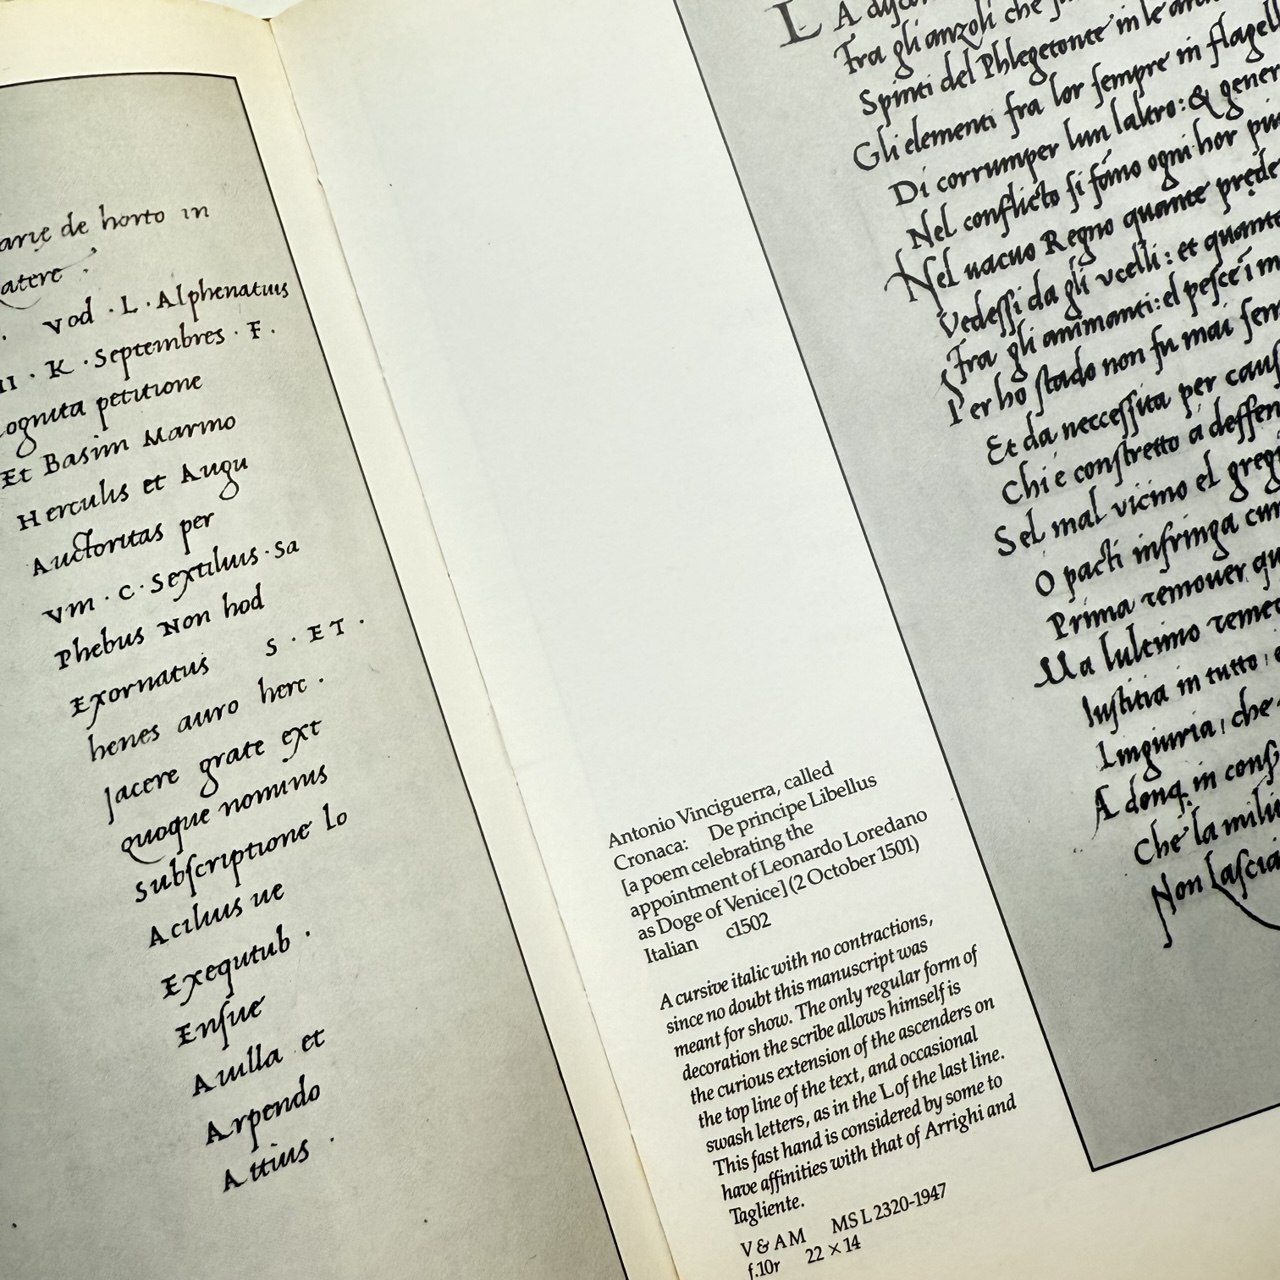 arię de horto in
atere
vod · L · Alphenatius
II · K · Septembres · F ·
ognita petitione
Et Basim Marmo
Herculis et Augu
Auctoritas per
vm · C · Sextilius · Sa
Phebus Non hod
Exornatus S · ET ·
henes auro herc ·
Jacere grate ext
quoque nominis
Subſcriptione lo
Acilius ue
Exequtub ·
Enſue
Auilla et
Arpendo
Attius ·
Antonio Vinciguerra, called
Cronaca: De principe Libellus
[a poem celebrating the
appointment of Leonardo Loredano
as Doge of Venice] (2 October 1501)
Italian c1502
A cursive italic with no contractions,
since no doubt this manuscript was
meant for show. The only regular form of
decoration the scribe allows himself is
the curious extension of the ascenders on
the top line of the text, and occasional
swash letters, as in the L of the last line.
This fast hand is considered by some to
have affinities with that of Arrighi and
Tagliente.
V & A M MS L 2320-1947
f.10r 22 × 14
LA
Fra gli anzoli che
Spinti del Phlegetonte in le
Gli elementi fra lor ſempre in flagell
Di corrumper lun laltro: & gener
Nel conflicto ſi fāno ogni hor piu
Nel uacuo Regno quante prede
Vedeſſi da gli vcelli: et quante
Fra gli animanti: el peſce ī m
Per ho ſtado non fu mai ſem
Et da neceeſſita per cauſ
Chi e conſtretto á deffen
Sel mal vicino el greg
O pacti infringa cum
Prima remouer qu
Ma lultimo remed
Iuſtitia in tutto, e
Lingiuria, che
A donq. in conſ
Che la mili
Non laſcia